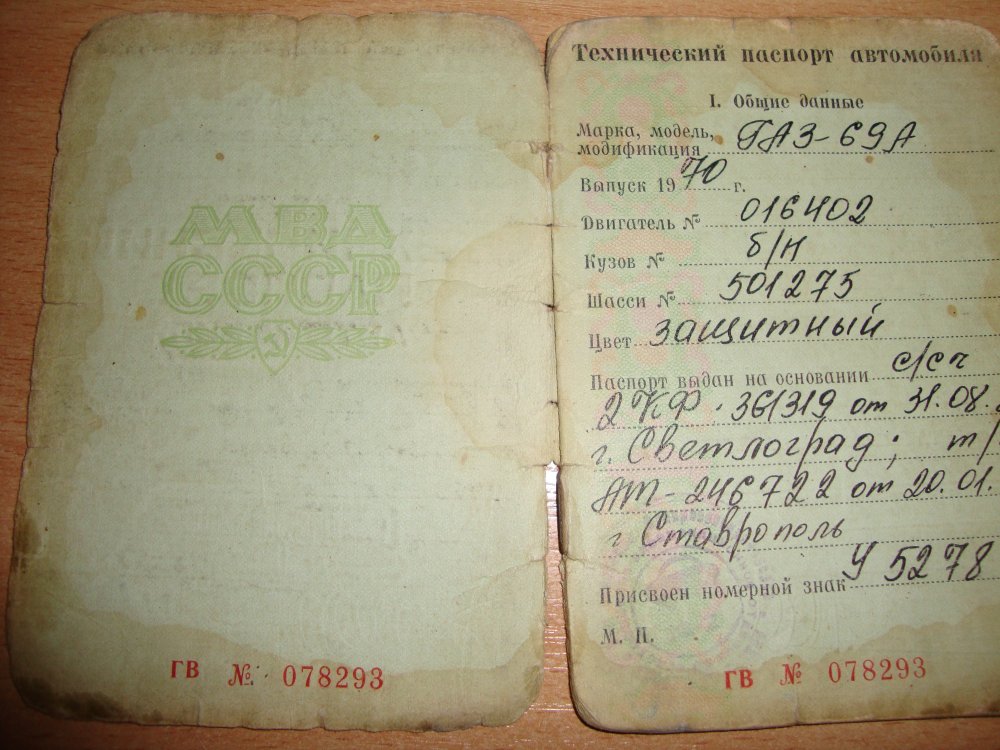 МВД
СССР
ГВ № 078293
Технический паспорт автомобиля
I. Общие данные
Марка, модель,
модификация ГАЗ-69А
Выпуск 1970 г.
Двигатель № 016402
Кузов № б/н
Шасси № 501275
Цвет защитный
Паспорт выдан на основании с/сч
2 КФ · 361319 от 31.08.
г. Светлоград; т/
АТ-246722 от 20.01.
г Ставрополь
Присвоен номерной знак У 5278
М. П.
ГВ № 078293